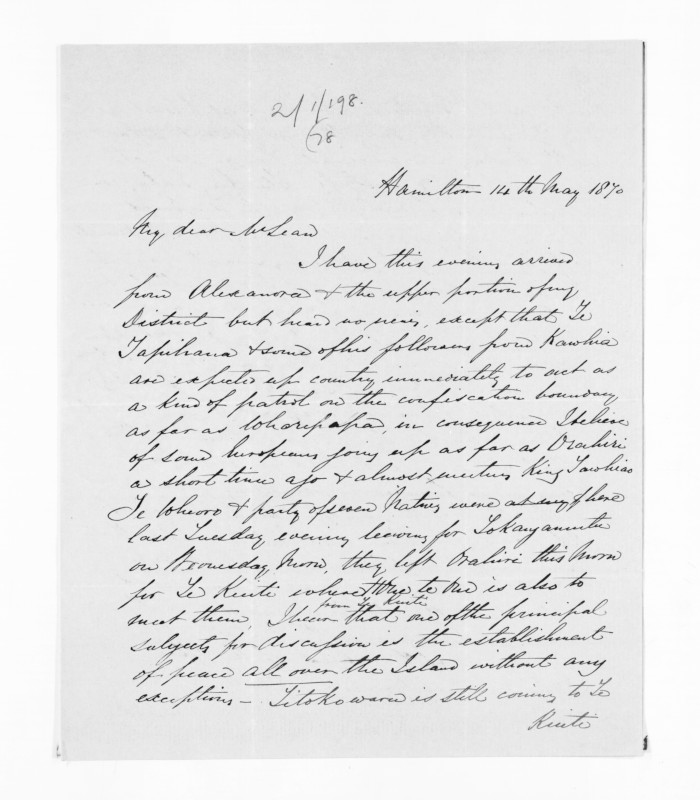 2/1/198.
/78
Hamilton 14th May 1870
My dear McLean
I have this evening arrived
from Alexandra & the upper portion of my
District but heard no news, except that Te
Tapihana & some of his followers from Kawhia
are expected up country immediately to act as
a kind of patrol on the confiscation boundary
as far as Wharepapa, in consequence I believe
of some Europeans going up as far as Orahiri
a short time ago & almost meeting King Tawhiao
Te Wheoro & party of seven Natives were here
last Tuesday evening leaving for Tokangamutu
on Wednesday Morn, they left Orahiri this Morn
for Te Kuiti where te Ore is also to
meet them, I hear from Te Kuiti that one of the principal
subjects for discussion is the establishment
of peace all over the Island without any
exceptions - Titokowaru is still coming to Te
Kuiti